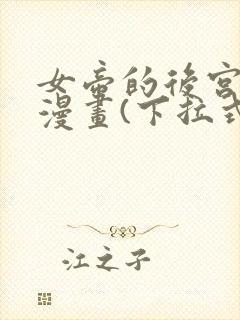 女帝的後宮
漫畫(下拉式
江之子